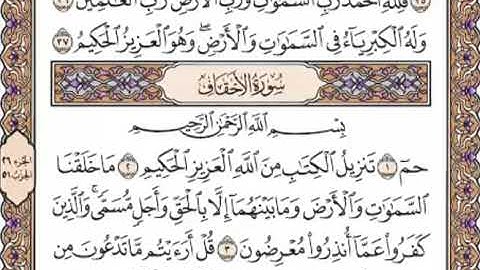 فَلِلَّهِ الْحَمْدُ رَبِّ السَّمَٰوَٰتِ وَرَبِّ الْأَرْضِ رَبِّ الْعَٰلَمِينَ ٣٦
وَلَهُ الْكِبْرِيَآءُ فِى السَّمَٰوَٰتِ وَالْأَرْضِ ۖ وَهُوَ الْعَزِيزُ الْحَكِيمُ ٣٧
سُورَةُ الْأَحْقَافِ
بِسْمِ اللَّهِ الرَّحْمَٰنِ الرَّحِيمِ
حمٓ ١ تَنزِيلُ الْكِتَٰبِ مِنَ اللَّهِ الْعَزِيزِ الْحَكِيمِ ٢ مَا خَلَقْنَا
السَّمَٰوَٰتِ وَالْأَرْضَ وَمَا بَيْنَهُمَآ إِلَّا بِالْحَقِّ وَأَجَلٍ مُّسَمًّى ۚ وَالَّذِينَ
كَفَرُوا۟ عَمَّآ أُنذِرُوا۟ مُعْرِضُونَ ٣ قُلْ أَرَءَيْتُم مَّا تَدْعُونَ مِن
الجزء ٢٦
الحزب ٥١